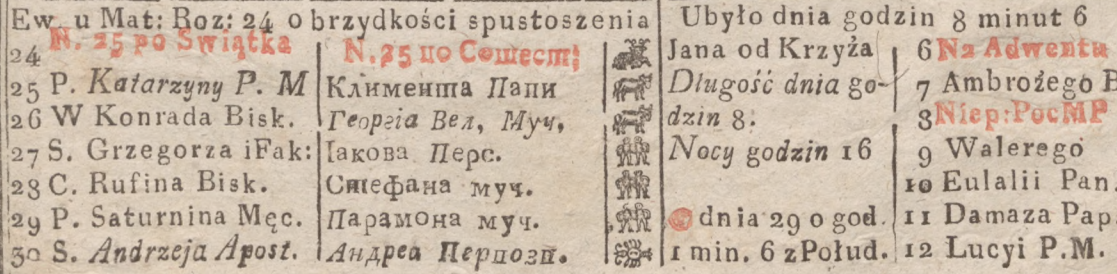 Ew. u Mat: Roz: 24 o brzydkości spustoszenia
24 N. 25 po Swiątka
25 P. Katarzyny P. M
26 W Konrada Bisk.
27 S. Grzegorza iFak:
28 C. Rufina Bisk.
29 P. Saturnina Męc.
30 S. Andrzeja Apost.
N. 25 по Сошест;
Климента Папи
Георгіа Вел, Муч,
Іакова Перс.
Стефана муч.
Парамона муч.
Андреа Перпозв.
Ubyło dnia godzin 8 minut 6
Jana od Krzyża
Długość dnia go-
dzin 8.
Nocy godzin 16
dnia 29 o god.
1 min. 6 z Połud.
6 N2 Adwentu
7 Ambrożego B
8 Niep: Poc MP
9 Walerego
10 Eulalii Pan.
11 Damaza Pap.
12 Łucyi P. M.